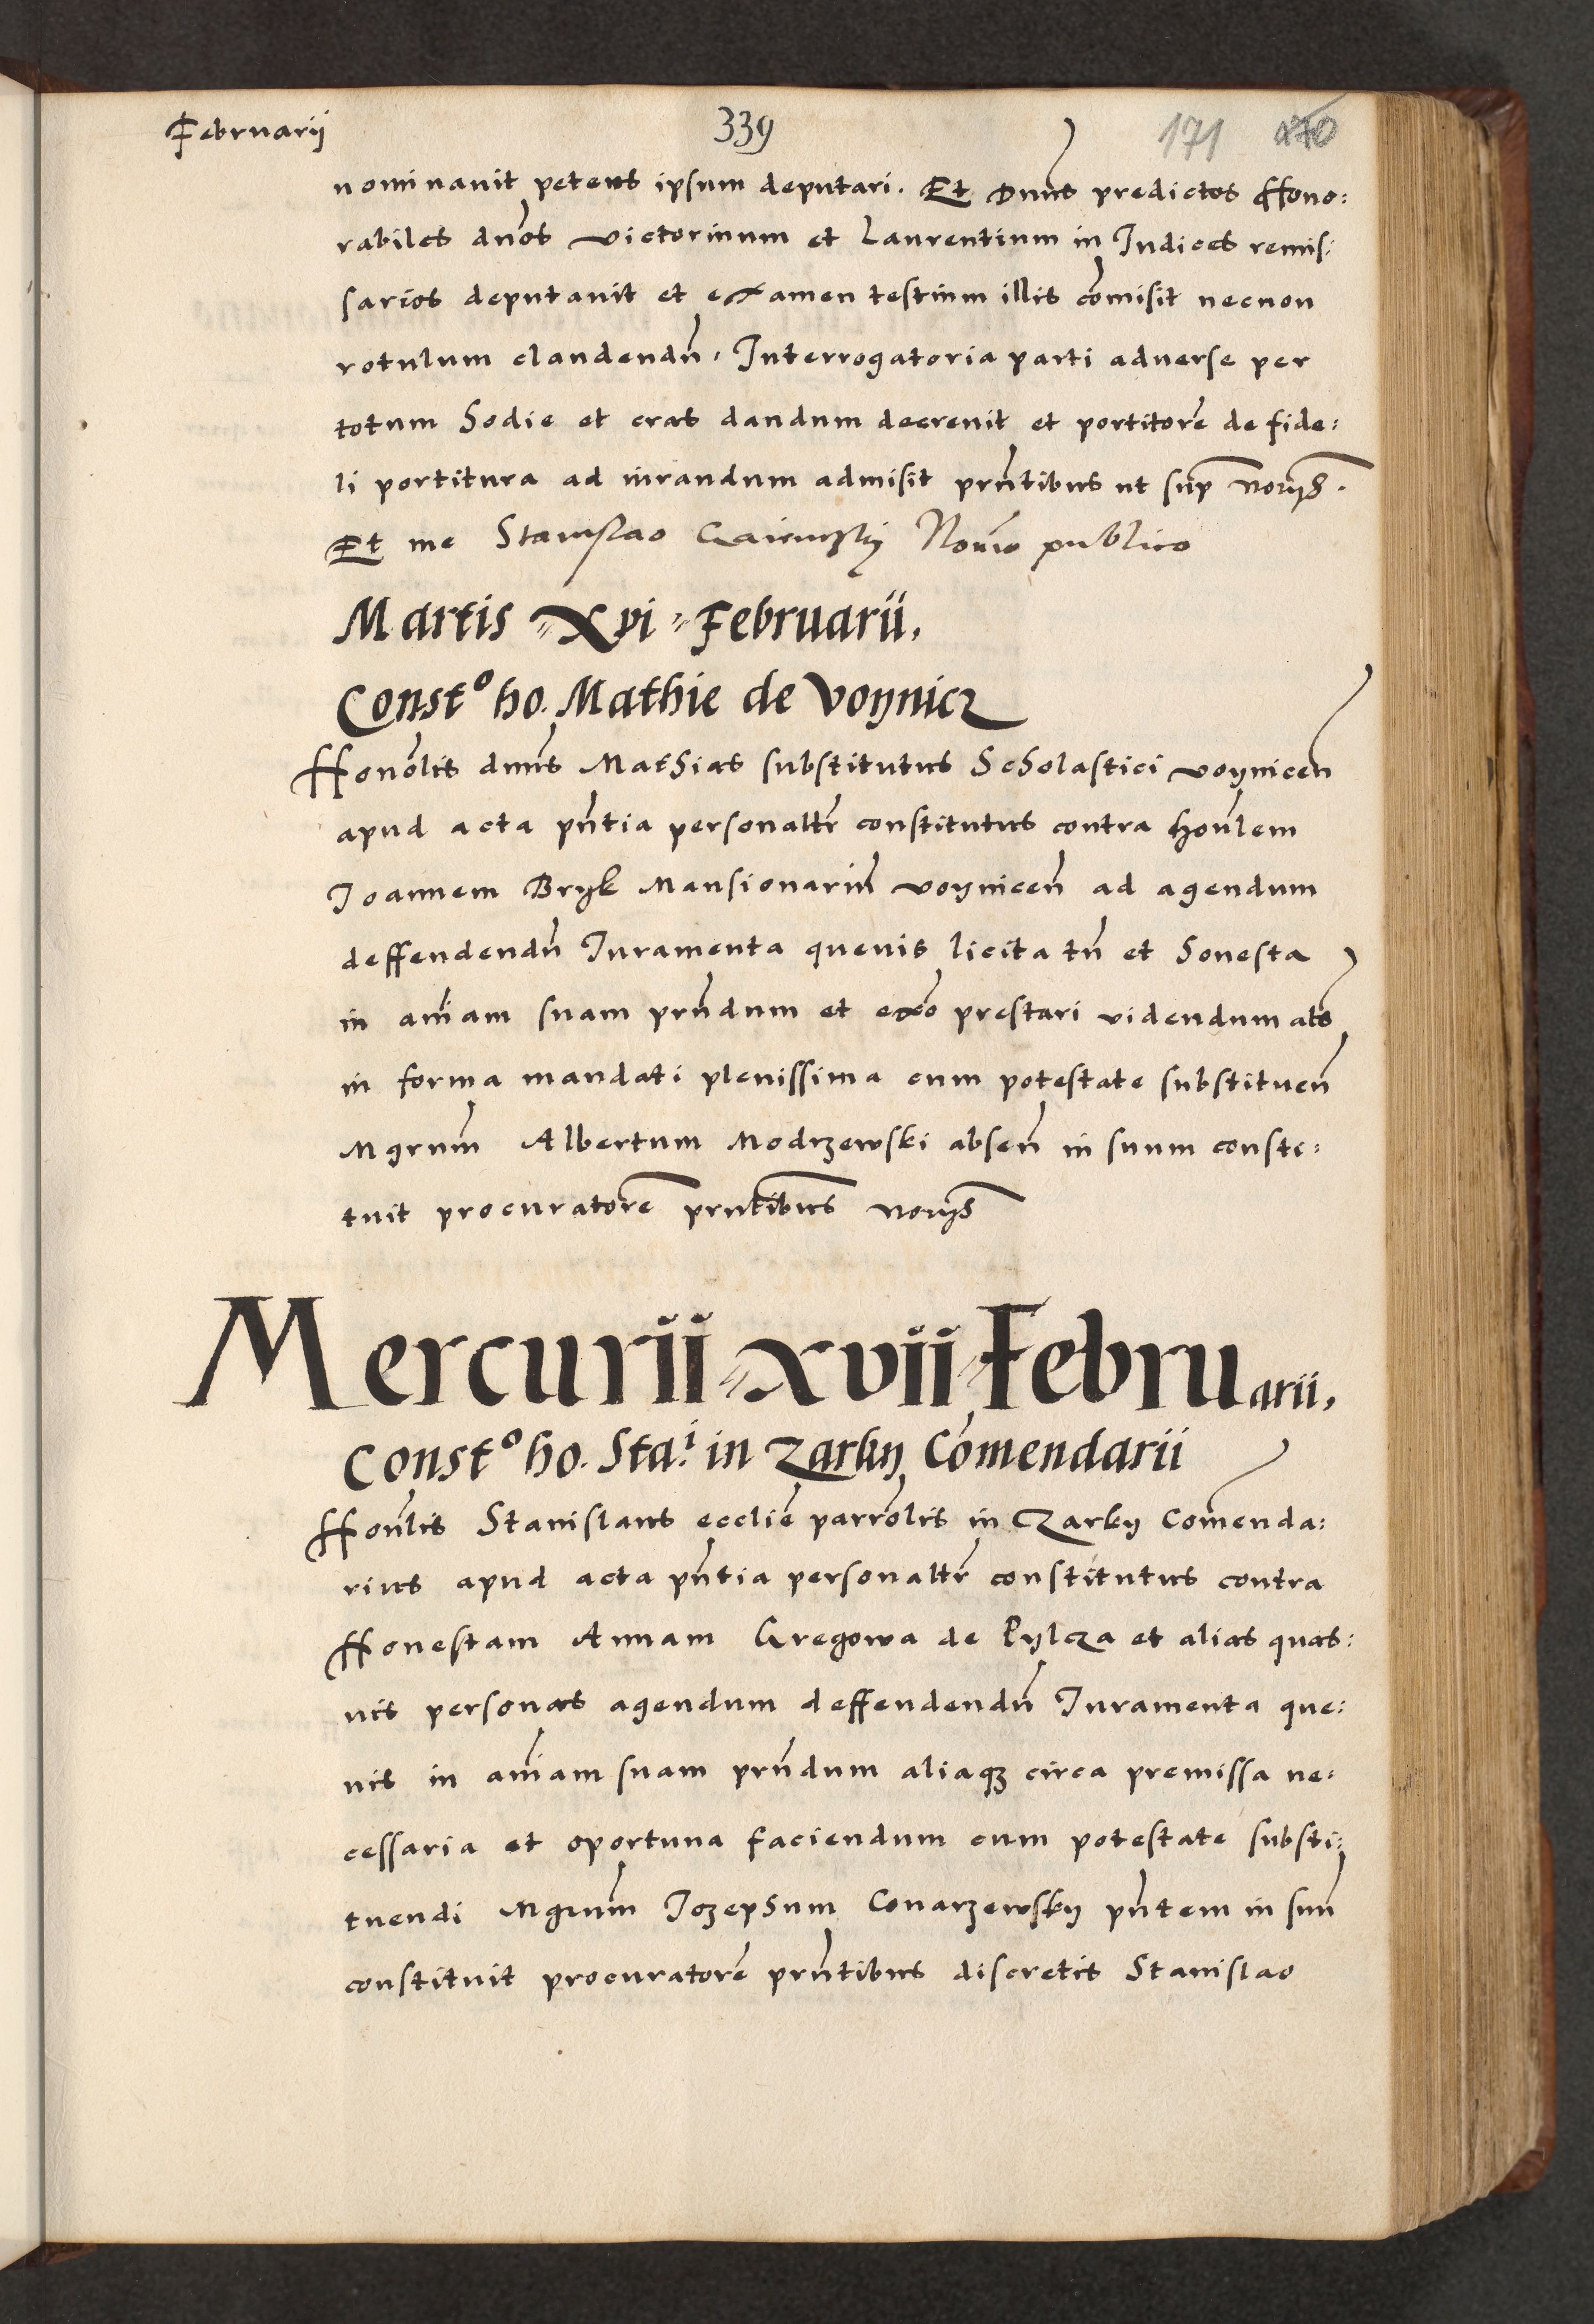 Februarij
339
171 170
nominavit petens ipsum deputari. Et Dnus predictos Hono:
rabiles dnos victorinum et Laurentium in Iudices remis:
sarios deputavit et examen testium illis comisit necnon
rotulum claudendn. Interrogatoria parti adverse per
totum hodie et cras dandum decrevit et portitore de fide:
li portitura ad iurandum admisit prntibus ut sup
Et me Stanislao publico
Martis xvi Februarii,
Constº ho. Mathie de Voynicz
Honolis dnus Mathias substitutus Scholastici voynicen
apud acta pntia personaltr constitutus contra honlem
Joannem Bryk Mansionarium voynicen ad agendum
deffendendn Iuramenta quevis licita tn et honesta
in aniam suam prndum et exo prestari videndum als
in forma mandati plenissima cum potestate substituen
Mgrum Albertum Modrzewski absen in suum consti:
tuit procuratore prntibus
Mercurii xvii Februarii,
Constº ho. Sta.i in Zarky Comendarii
Honlis Stanislaus ecclie parrolis in Czarky Comenda:
rius apud acta pntia personaltr constitutus contra
Honestam Annam Gregowa de Pylcza et alias quas:
vis personas agendum deffendendn Iuramenta que:
vis in aniam suam prndum aliaqz circa premissa ne:
cessaria et oportuna faciendum cum potestate substi:
tuendi Mgrum Jozephum Conarzewsky pntem in suu
constituit procuratore prntibus discretis Stanislao